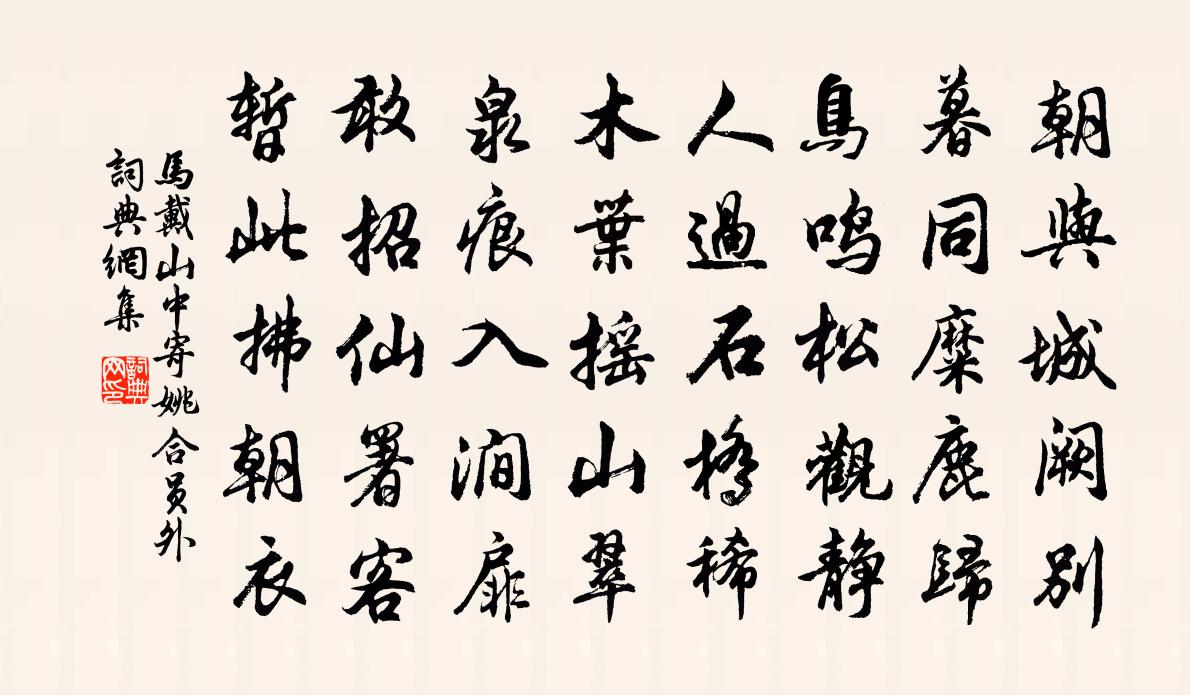 朝與城闕別
暮同麋鹿歸
鳥鳴松觀静
人過石橋稀
木葉摇山翠
泉痕入澗扉
敢招仙署客
暫此拂朝衣
馬戴山中寄姚合員外
詞典網集
詞典
网印